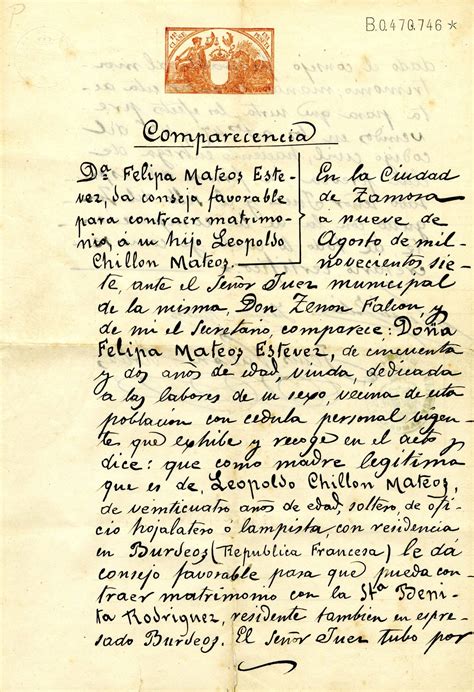 P
B.0.470.746 *
Comparecencia
Dª Felipa Mateos Este-
vez, da consejo favorable
para contraer matrimo-
nio, á su hijo Leopoldo
Chillon Mateos.
En la Ciudad
de Zamora
a nueve de
Agosto de mil
novecientos sie-
te, ante el Señor Juez municipal
de la misma, Don Zenon Falcon, y
de mi el Secretario, comparece: Doña
Felipa Mateos Estevez, de cincuenta
y dos años de edad, viuda, dedicada
a las labores de su sexo, vecina de esta
poblacion con cedula personal vigen-
te que exhibe y recoge en el acto y
dice: que como madre legitima
que es de, Leopoldo Chillon Mateos,
de veinticuatro años de edad, soltero, de ofi-
cio hojalatero ó lampista, con residencia
en Burdeos (Republica Francesa) le dá
consejo favorable para que pueda con-
traer matrimonio con la Stª Beni-
ta Rodriguez, residente tambien en espre-
sado Burdeos. El Señor Juez tubo por